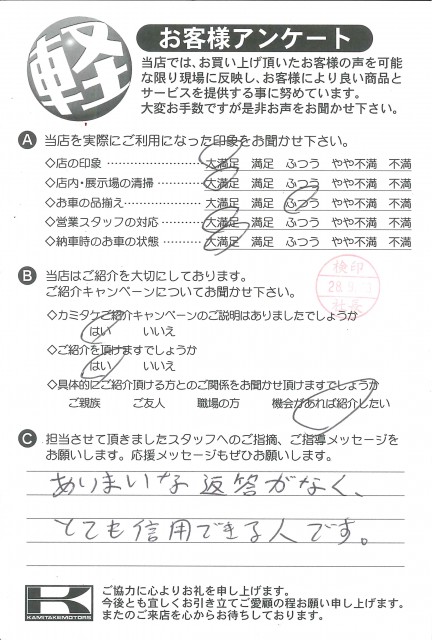 軽
お客様アンケート
当店では、お買い上げ頂いたお客様の声を可能
な限り現場に反映し、お客様により良い商品と
サービスを提供する事に努めています。
大変お手数ですが是非お声をお聞かせ下さい。
A 当店を実際にご利用になった印象をお聞かせ下さい。
◇店の印象 ‥‥‥‥‥‥‥‥ 大満足 満足 ふつう やや不満 不満
◇店内・展示場の清掃 ‥‥‥‥ 大満足 満足 ふつう やや不満 不満
◇お車の品揃え‥‥‥‥‥‥‥ 大満足 満足 ふつう やや不満 不満
◇営業スタッフの対応 ‥‥‥‥ 大満足 満足 ふつう やや不満 不満
◇納車時のお車の状態 ‥‥‥‥ 大満足 満足 ふつう やや不満 不満
B 当店はご紹介を大切にしてあります。
ご紹介キャンペーンについてお聞かせ下さい。
検印
28.9.
社長
◇カミタケご紹介キャンペーンのご説明はありましたでしょうか
はい いいえ
◇ご紹介を頂けますでしょうか
はい いいえ
◇具体的にご紹介頂ける方とのご関係をお聞かせ頂けますでしょうか
ご親族 ご友人 職場の方 機会があれば紹介したい
C 担当させて頂きましたスタッフへのご指摘、ご指導メッセージを
お願いします。応援メッセージもぜひお願いします。
あいまいな返答がなく、
とても信用できる人です。
K
KAMITAKEMOTORS
ご協力に心よりお礼を申し上げます。
今後とも宜しくお引き立てご愛顧の程お願い申し上げます。
またのご来店を心からお待ちしております。